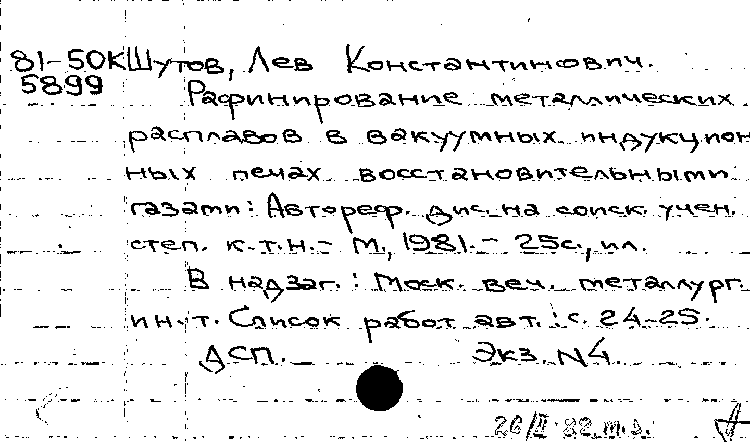 81-50К Шутов, Лев Константинович.
5899
Рафинирование металлических
расплавов в вакуумных индукцион
ных печах восстановительными
газами: Автореф. дис. на соиск. учен.
степ. к.т.н. - М., 1981. - 25с., ил.
В надзаг.: Моск. веч. металлург.
ин-т. Список работ авт.: с. 24-25.
ДСП. Экз. N4.
26/II-82